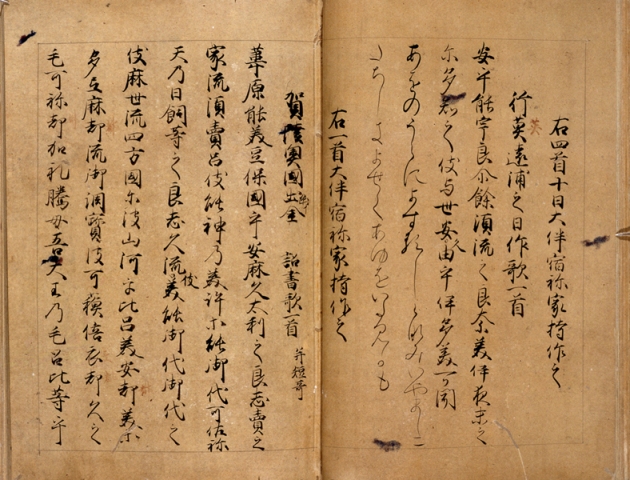 右四首十日大伴宿祢家持作之
行英遠浦之日作歌一首
安乎能宇良尓餘須流之良奈美伊夜末之
尓多知之伎与世久安由乎伊多美可聞
あをのうらによするしらなみいやましに
たちしきよせくあゆをいたみかも
右一首大伴宿祢家持作之
賀陸奥國出金 詔書歌一首 并短哥
葦原能美豆保國乎安麻久太利之良志賣之
家流須賣呂伎能神乃美許等能御代可佐祢
天乃日嗣等之良志久流伎美能御代御代之
伎麻世流四方國尓波山河乎比呂美安都美等
多弖麻都流御調寶波可蘇倍衣都久之
毛可祢都加礼騰母吾大王乃毛呂比登乎